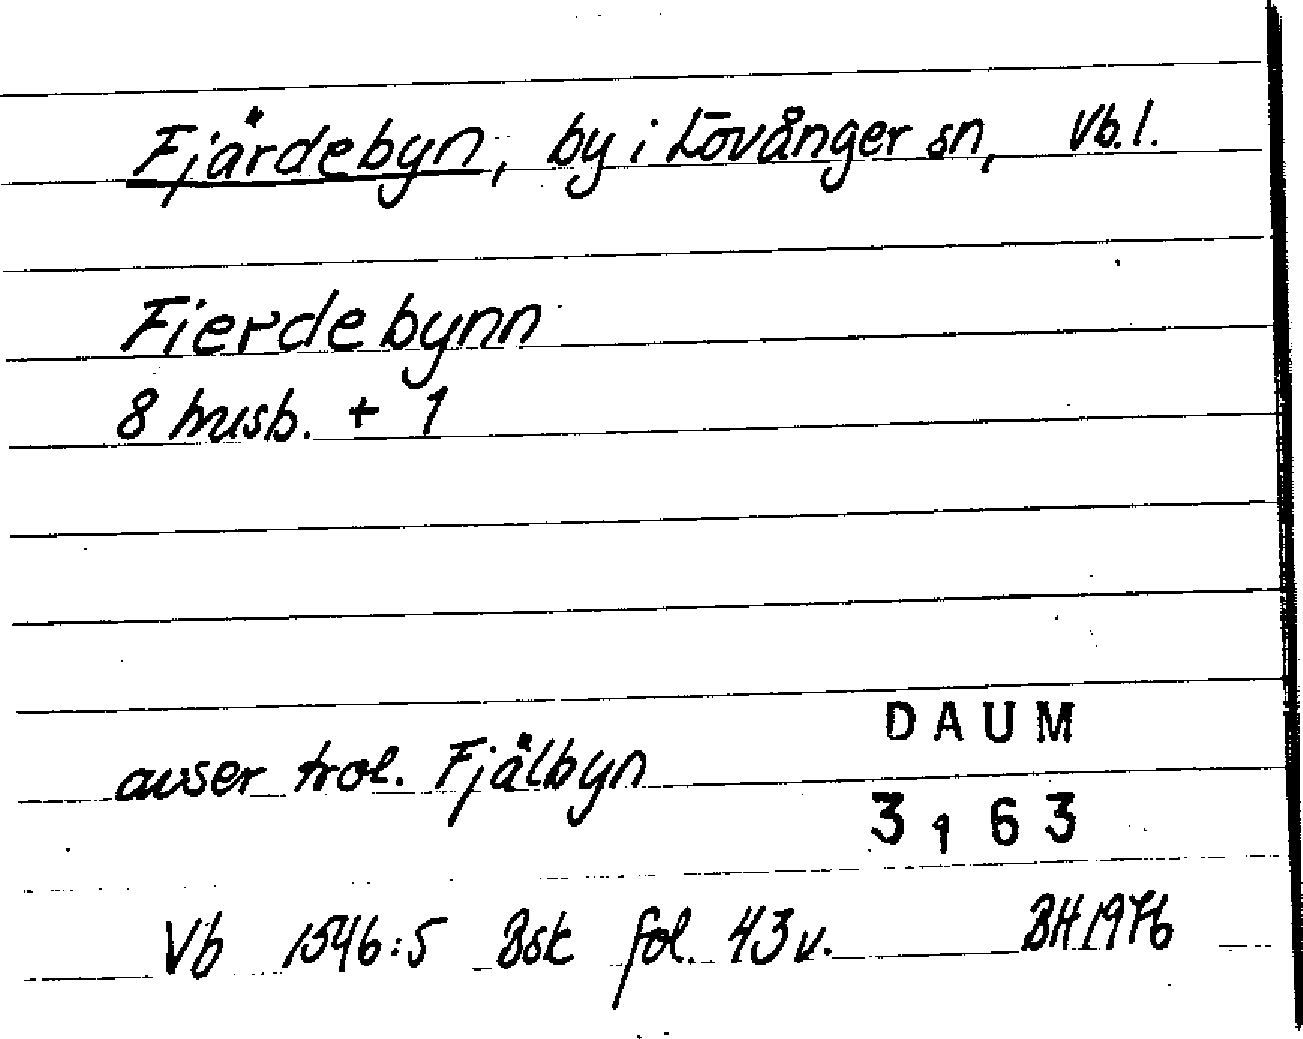 Fjärdebyn, by i Lövånger sn, Vb. l.
Fierdebynn
8 husb. + 1
DAUM
avser trol. Fjälbyn
3163
Vb 1546:5 Bsk fol. 43v. BH 1976